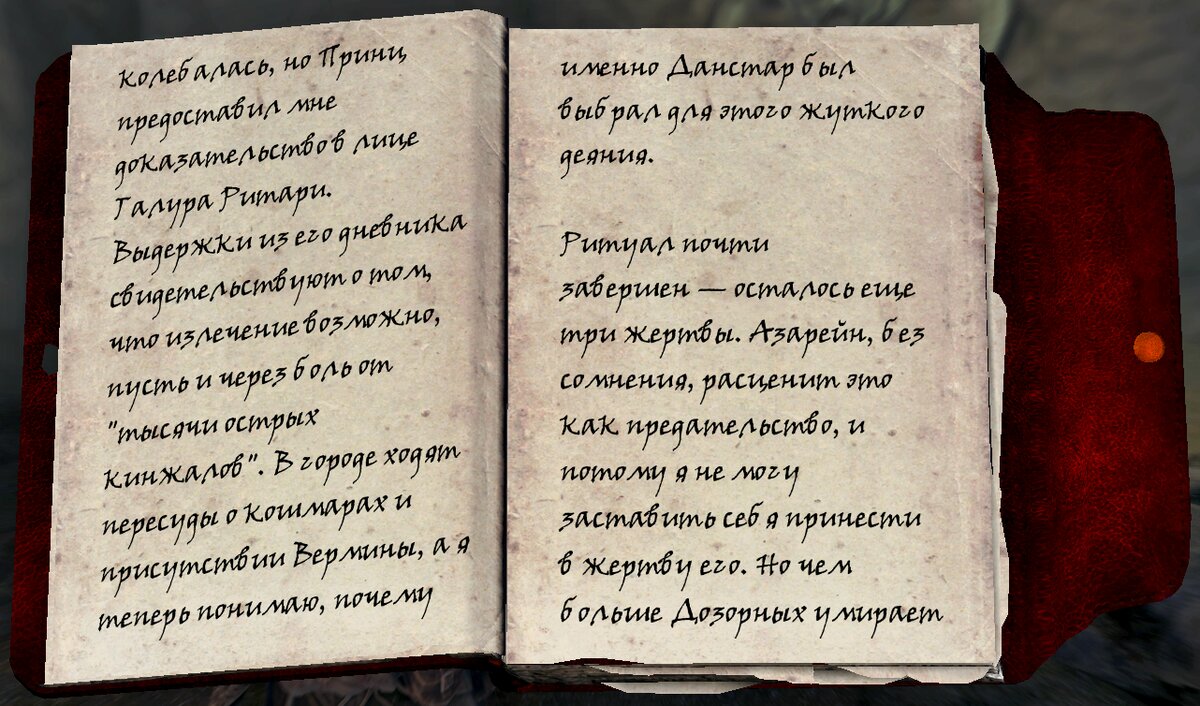 колебалась, но Принц
предоставил мне
доказательство в лице
Галура Ритари.
Выдержки из его дневника
свидетельствуют о том,
что излечение возможно,
пусть и через боль от
"тысячи острых
кинжалов". В городе ходят
пересуды о кошмарах и
присутствии Вермины, а я
теперь понимаю, почему
именно Данстар был
выбрал для этого жуткого
деяния.
Ритуал почти
завершен — осталось еще
три жертвы. Азарейн, без
сомнения, расценит это
как предательство, и
потому я не могу
заставить себя принести
в жертву его. Но чем
больше Дозорных умирает